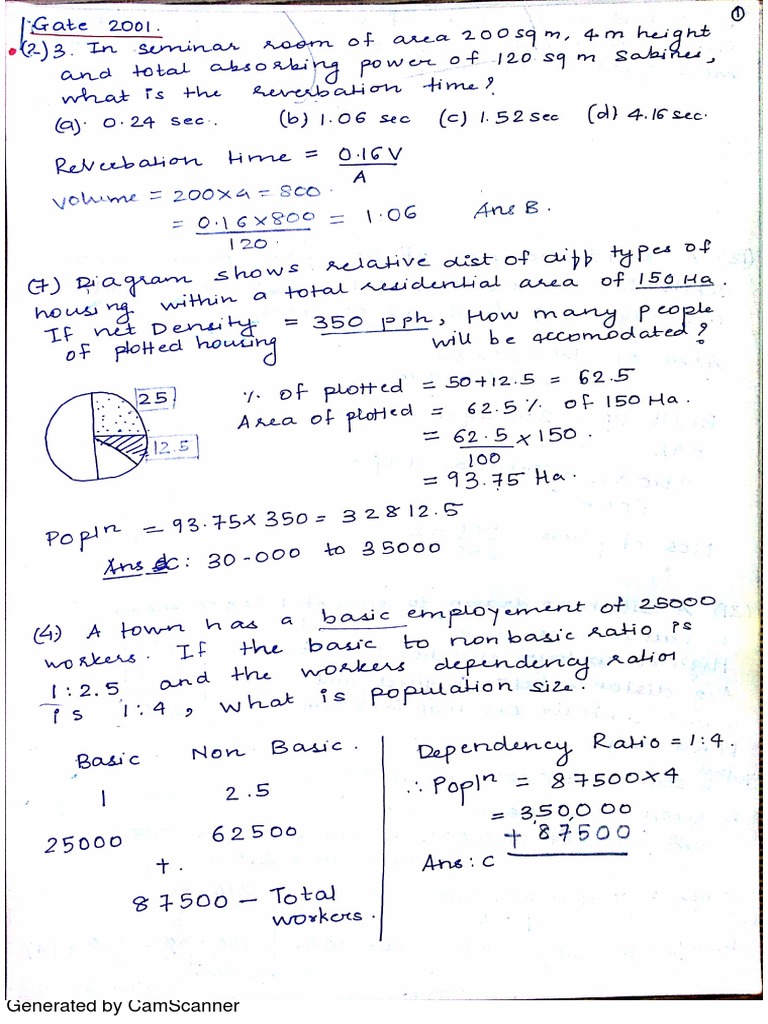 Gate 2001.
①
(2) 3. In seminar room of area 200 sq m, 4 m height
and total absorbing power of 120 sq m Sabines,
what is the reverbation time?
(a). 0.24 sec. (b) 1.06 sec (c) 1.52 sec (d) 4.16 sec.
Reverbation time = 0.16 V
A
Volume = 200 x 4 = 800.
= 0.16 x 800 = 1.06 Ans B.
120.
(7) Diagram shows relative dist of diff types of
housing within a total residential area of 150 Ha.
If net Density = 350 pph, How many people
of plotted housing will be accomodated?
25
12.5
% of plotted = 50+12.5 = 62.5
Area of plotted = 62.5 % of 150 Ha.
= 62.5 x 150.
100
= 93.75 Ha.
Popln = 93.75 x 350 = 32812.5
Ans C: 30-000 to 35000
(4) A town has a basic employement of 25000
workers. If the basic to non basic ratio is
1:2.5 and the workers dependency ratio
is 1:4, what is population size.
Basic Non Basic.
1 2.5
25000 62500
+.
87500 - Total
workers.
Dependency Ratio = 1:4.
∴ Popln = 87500 x 4
= 3,50,000
+ 87500
Ans: C
Generated by CamScanner